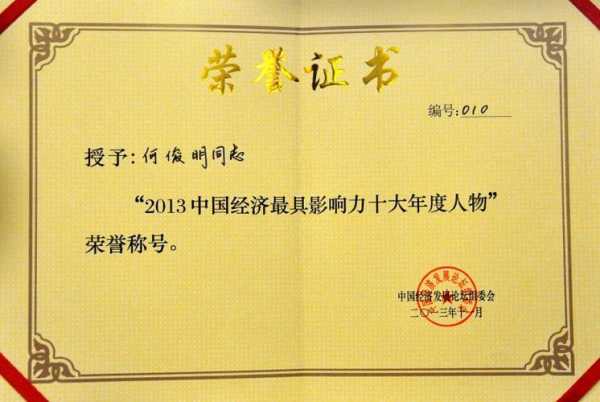 荣誉证书
编号:010
授予:何俊明同志
“2013中国经济最具影响力十大年度人物”
荣誉称号。
中国经济发展论坛组委会
二〇一三年十一月